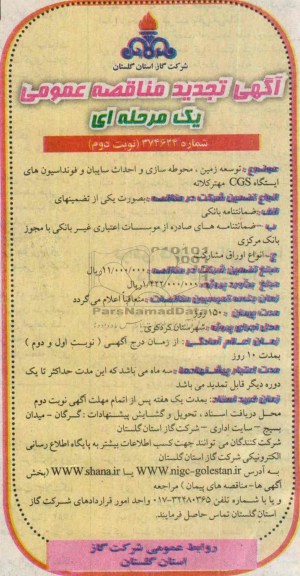 شرکت گاز استان گلستان
آگهی تجدید مناقصه عمومی
یک مرحله ای
شماره ۳۷۴۶۳۳ (نوبت دوم)
موضوع: توسعه زمین ، محوطه سازی و احداث سایبان و فونداسیون های
ایستگاه CGS مهترکلاته
انواع تضمین شرکت در مناقصه: بصورت یکی از تضمینهای
الف- ضمانتنامه بانکی
ب- ضمانتنامه های صادره از موسسات اعتباری غیربانکی با مجوز
بانک مرکزی
ج- انواع اوراق مشارکت
مبلغ تضمین شرکت در مناقصه: ۱۱/۰۰۰/۰۰۰ ریال
مبلغ برآورد پروژه: ۱/۴۲۲/۰۰۰/۰۰۰ ریال
زمان جلسه کمیسیون مناقصات: متعاقباً اعلام می گردد
مدت پیمان: ۱۵۰ روز
محل اجرای پروژه: شهرستان کردکوی
زمان اعلام آمادگی: از زمان درج آگهی ( نوبت اول و دوم )
بمدت ۱۰ روز
مدت اعتبار پیشنهادها: سه ماه می باشد که این مدت حداکثر تا یک
دوره دیگر قابل تمدید می باشد
زمان خرید اسناد: بمدت یک هفته پس از اتمام مهلت آگهی نوبت دوم
محل دریافت اسناد ، تحویل و گشایش پیشنهادات : گرگان - میدان
بسیج - سایت اداری - شرکت گاز استان گلستان
شرکت کنندگان می توانند جهت کسب اطلاعات بیشتر به پایگاه اطلاع رسانی
الکترونیکی شرکت گاز استان گلستان
به آدرس WWW.nigc-golestan.ir یا WWW.shana.ir (بخش
آگهی ها- مناقصه های پیمان ) مراجعه
و یا با شماره تلفن ۳۲۴۸۰۳۶۵-۰۱۷ واحد امور قراردادهای شرکت گاز
استان گلستان تماس حاصل فرمایند.
روابط عمومی شرکت گاز
استان گلستان
ParsNamadData